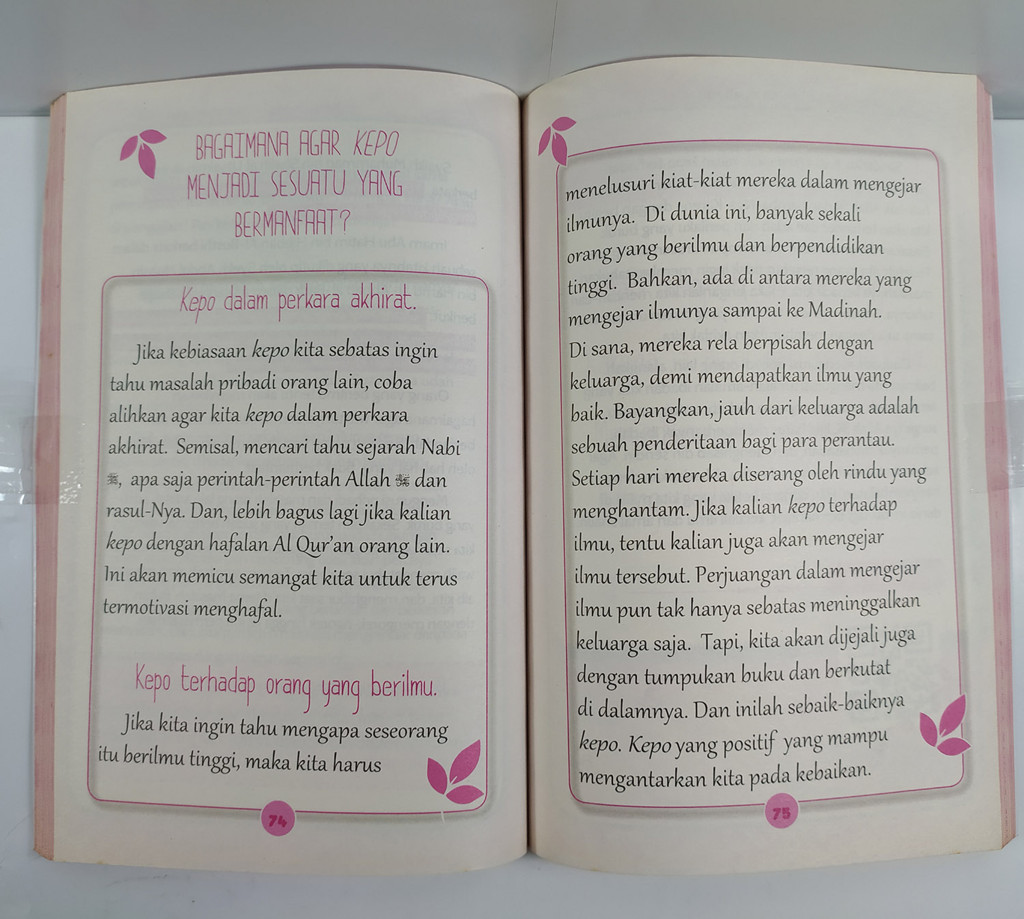 BAGAIMANA AGAR KEPO
MENJADI SESUATU YANG
BERMANFAAT?
Kepo dalam perkara akhirat.
Jika kebiasaan kepo kita sebatas ingin
tahu masalah pribadi orang lain, coba
alihkan agar kita kepo dalam perkara
akhirat. Semisal, mencari tahu sejarah Nabi
ﷺ, apa saja perintah-perintah Allah ﷻ dan
rasul-Nya. Dan, lebih bagus lagi jika kalian
kepo dengan hafalan Al Qur'an orang lain.
Ini akan memicu semangat kita untuk terus
termotivasi menghafal.
Kepo terhadap orang yang berilmu.
Jika kita ingin tahu mengapa seseorang
itu berilmu tinggi, maka kita harus
74
menelusuri kiat-kiat mereka dalam mengejar
ilmunya. Di dunia ini, banyak sekali
orang yang berilmu dan berpendidikan
tinggi. Bahkan, ada di antara mereka yang
mengejar ilmunya sampai ke Madinah.
Di sana, mereka rela berpisah dengan
keluarga, demi mendapatkan ilmu yang
baik. Bayangkan, jauh dari keluarga adalah
sebuah penderitaan bagi para perantau.
Setiap hari mereka diserang oleh rindu yang
menghantam. Jika kalian kepo terhadap
ilmu, tentu kalian juga akan mengejar
ilmu tersebut. Perjuangan dalam mengejar
ilmu pun tak hanya sebatas meninggalkan
keluarga saja. Tapi, kita akan dijejali juga
dengan tumpukan buku dan berkutat
di dalamnya. Dan inilah sebaik-baiknya
kepo. Kepo yang positif yang mampu
mengantarkan kita pada kebaikan.
75